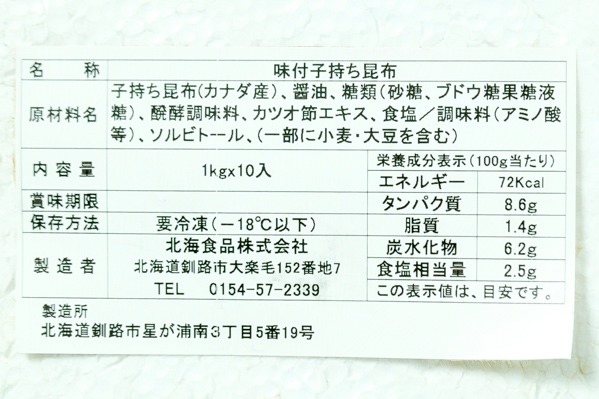 名称 味付子持ち昆布
原材料名 子持ち昆布(カナダ産)、醤油、糖類(砂糖、ブドウ糖果糖液
糖)、醗酵調味料、カツオ節エキス、食塩／調味料(アミノ酸
等)、ソルビトール、(一部に小麦・大豆を含む)
内容量 1kgx10入
賞味期限
保存方法 要冷凍(－18℃以下)
製造者 北海食品株式会社
北海道釧路市大楽毛152番地7
TEL 0154-57-2339
栄養成分表示(100g当たり)
エネルギー 72Kcal
タンパク質 8.6g
脂質 1.4g
炭水化物 6.2g
食塩相当量 2.5g
この表示値は、目安です。
製造所
北海道釧路市星が浦南3丁目5番19号